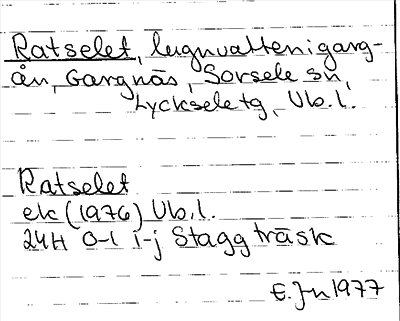 Ratselet, lugnvatten i garg-
ån, Gargnäs, Sorsele sn,
Lycksele tg, Vb.l.
Ratselet
ek (1976) Vb.l.
24H 0-1 i-j Staggträsk
E. Jn 1977